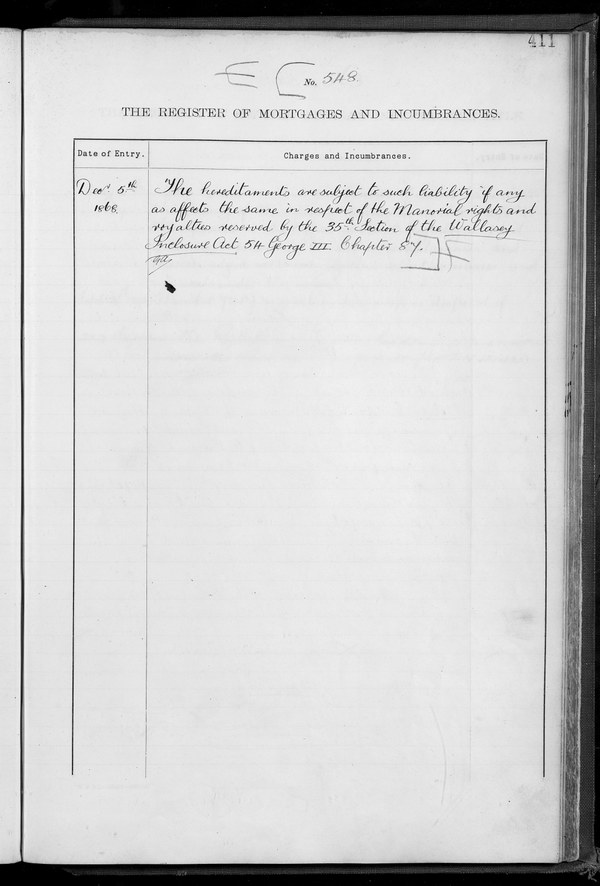 411
No. 548
THE REGISTER OF MORTGAGES AND INCUMBRANCES.
Date of Entry.
Charges and Incumbrances.
Decr 5th
1868.
The hereditaments are subject to such liability if any
as affects the same in respect of the Manorial rights and
royalties reserved by the 35th Section of the Wallasey
Inclosure Act 54 George III. Chapter 87.